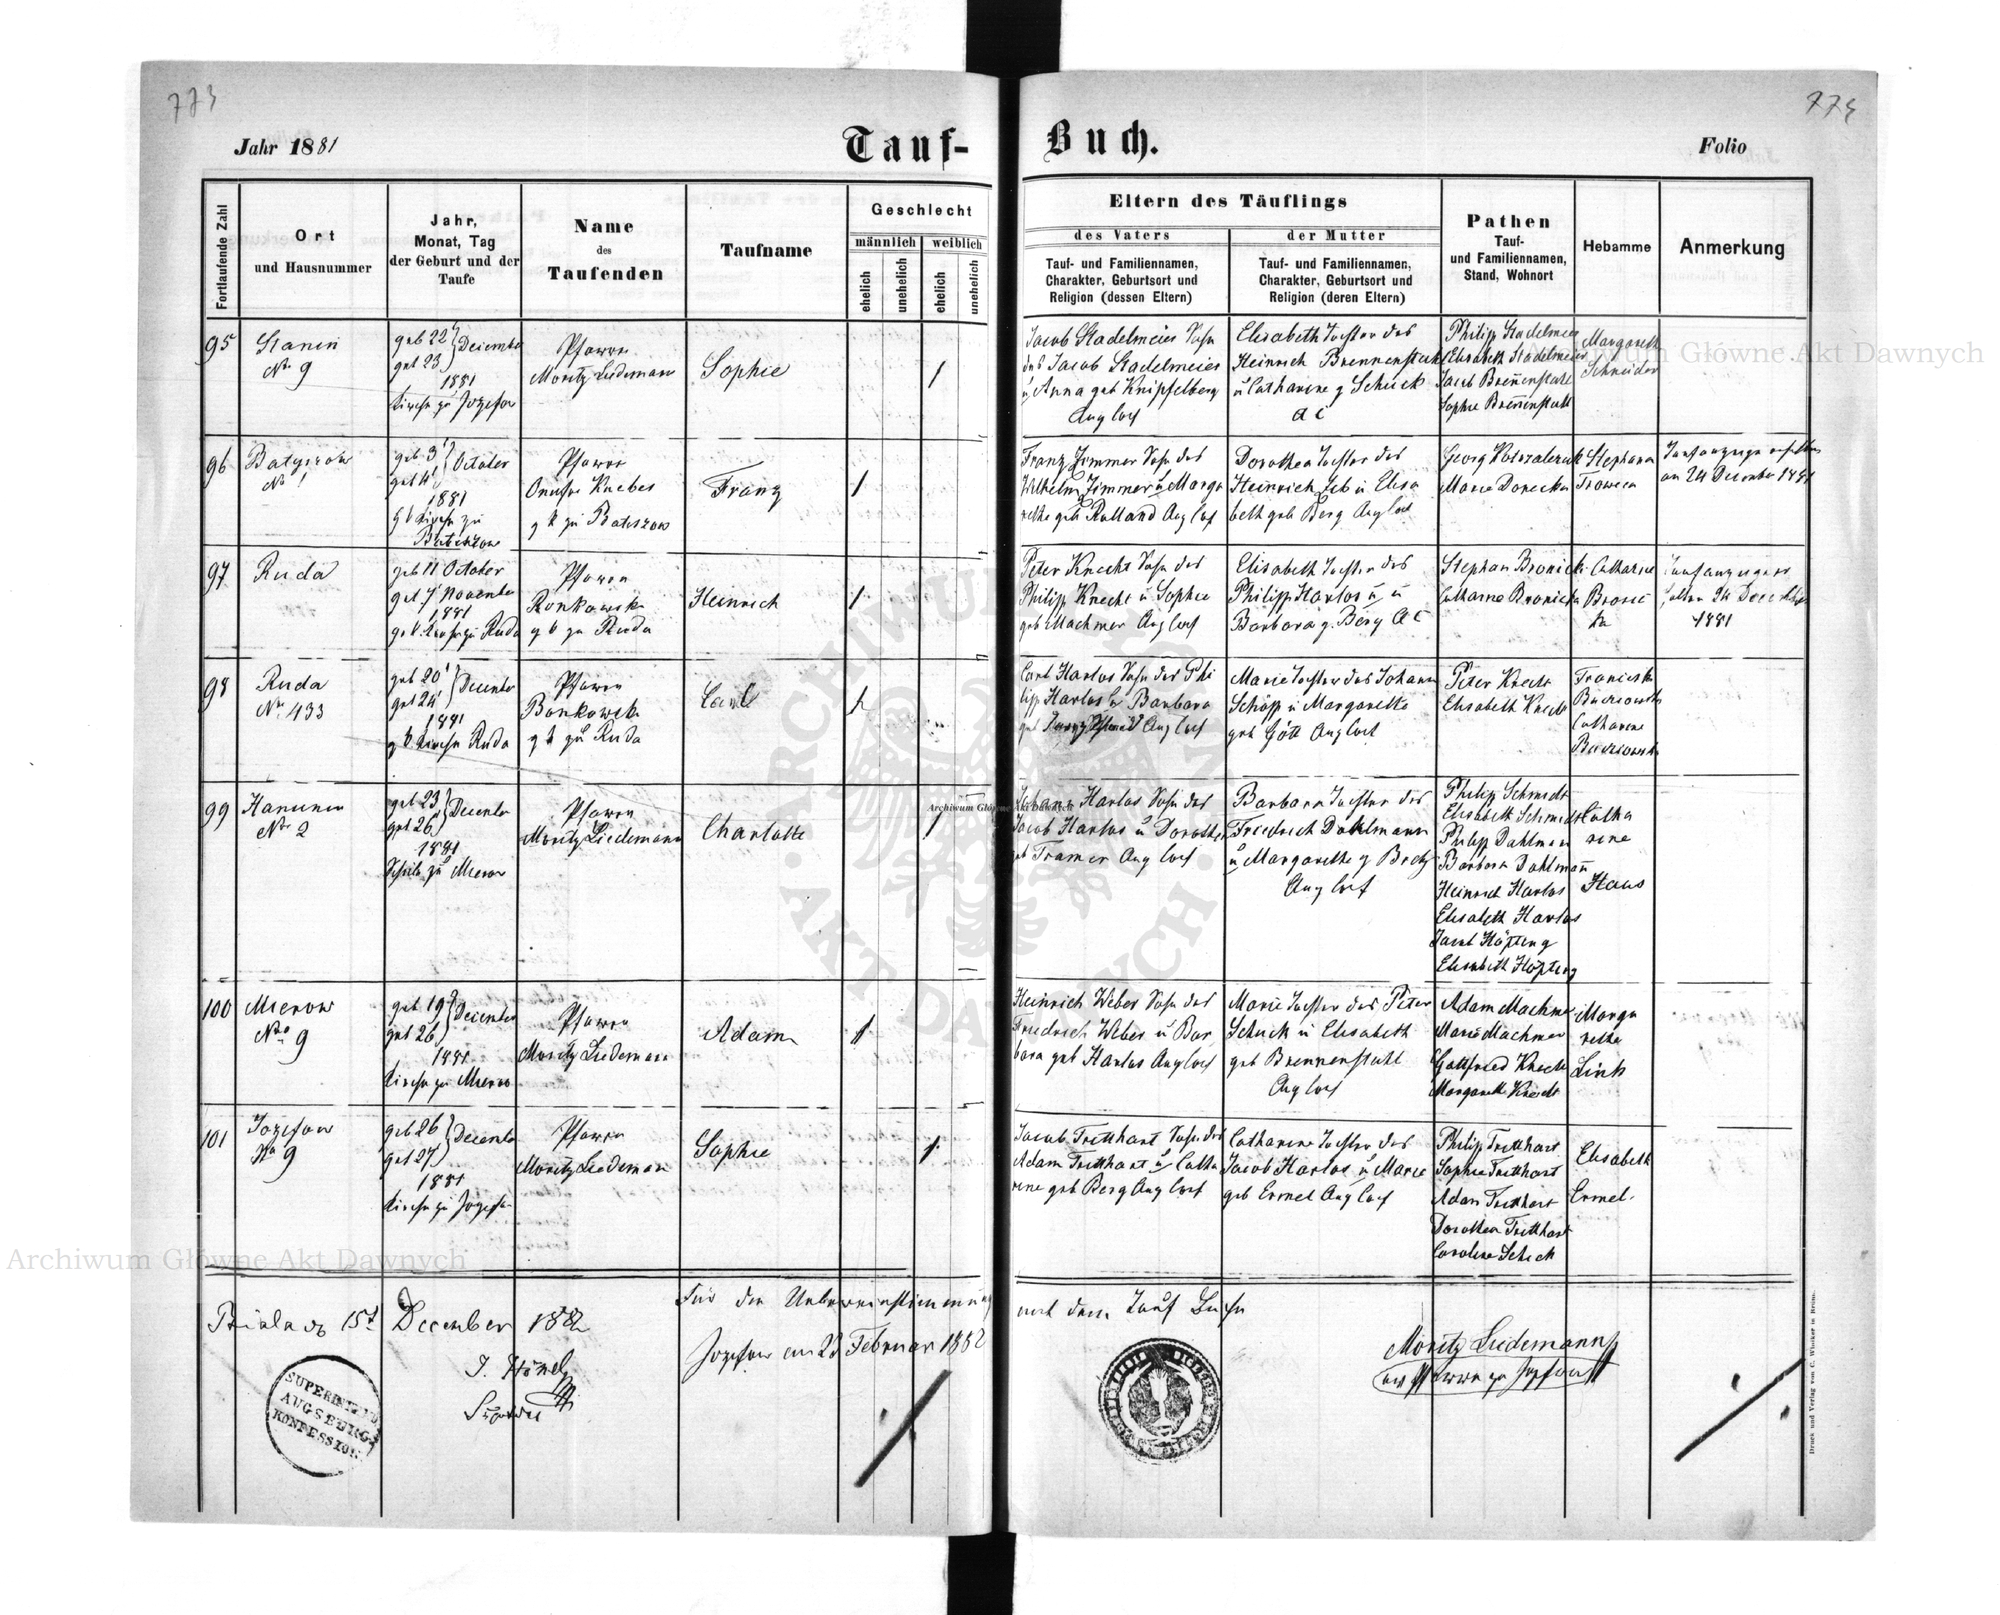 773
774
Jahr 1881
Tauf-
Buch.
Folio
Fortlaufende Zahl
Ort
und Hausnummer
Jahr,
Monat, Tag
der Geburt und der
Taufe
Name
des
Taufenden
Taufname
Geschlecht
männlich
weiblich
ehelich
unehelich
ehelich
unehelich
Eltern des Täuflings
des Vaters
der Mutter
Tauf- und Familiennamen,
Charakter, Geburtsort und
Religion (dessen Eltern)
Tauf- und Familiennamen,
Charakter, Geburtsort und
Religion (deren Eltern)
Pathen
Tauf-
und Familiennamen,
Stand, Wohnort
Hebamme
Anmerkung
95
Stanin
No 9
geb 22
get 23 December
1881
Kirche zu Jozefow
Pfarrer
Moritz Liedemann
Sophie
1
Jacob Stadelmeier Sohn
des Jacob Stadelmeier
u Anna geb Knipfelberg
Aug Conf
Elisabeth Tochter des
Heinrich Brennenstuhl
u Catharine g Schick
A C
Philipp Stadelmeier
Elisabeth Stadelmeier
Jacob Breñenstuhl
Sophie Breñenstuhl
Margareth
Schneider
96
Batyczow
No 1
geb 3
get 4 October
1881
g k Kirche zu
Baticzow
Pfarrer
Onufre Knebes
g k zu Batiszow
Franz
1
Franz Zimmer Sohn des
Wilhelm Zimmer u Marga
rethe geb Rolland Aug Conf
Dorothea Tochter des
Heinrich u Elisa
beth geb Berg Aug Conf
Georg
Maria
Stephania
am 24 December 1881
97
Ruda
geb 11 October
get 7 November
1881
gr k. Kirche zu Ruda
Pfarrer
g k zu Ruda
Heinrich
1
Peter Knecht Sohn des
Philipp Knecht u Sophie
geb Machmer Aug Conf
Elisabeth Tochter des
Philipp Harlos u
Barbara g. Berg A C
Stephan
Catharina
Catharine
24 December
1881
98
Ruda
No 433
geb 20
get 24 December
1881
g k Kirche Ruda
Pfarrer
Bonkowski
g k zu Ruda
Carl
1
Carl Harlos Sohn des Phi
lipp Harlos u Barbara
Aug Conf
Marie Tochter des Johann
Schöpp u Margaretha
geb Gött Aug Conf
Peter Knecht
Elisabeth Knecht
Catharine
99
Hanunin
No 2
geb 23
get 26 December
1881
Schule zu Mierow
Pfarrer
Moritz Liedemann
Charlotte
1
Johann Harlos Sohn des
Jacob Harlos u Dorothea
geb Tramer Aug Conf
Barbara Tochter des
Friedrich Dahlmann
u Margarethe g Bretz
Aug Conf
Philip Schmidt
Elisabeth Schmidt
Philipp Dahlman
Barbara Dahlmañ
Heinrich Harlos
Elisabeth Harlos
Jacob Höpting
Elisabeth Höpting
Catha
rine
Haus
100
Mierow
No 9
geb 19
get 26 December
1881
Kirche zu Mierow
Pfarrer
Moritz Liedemann
Adam
1
Heinrich Weber Sohn des
Friedrich Weber u Bar
bara geb Harlos Aug Conf
Marie Tochter des Peter
Schick u Elisabeth
geb Brennenstuhl
Aug Conf
Adam Machmer
Marie Machmer
Gottfried Knecht
Margareth Knecht
Marga
retha
Link
101
Jozefow
No 9
geb 26
get 27 December
1881
Kirche zu Jozefow
Pfarrer
Moritz Liedemann
Sophie
1
Jacob Tritthart Sohn des
Adam Tritthart u Catha
rine geb Berg Aug Conf
Catharine Tochter des
Jacob Harlos u Marie
geb Ermel Aug Conf
Philipp Tritthart
Sophie Tritthart
Adam Tritthart
Dorothea Tritthart
Caroline Schick
Elisabeth
Ermel.
Biala 15t December 1882
J. Hönel
Für die Uebereinstimmung mit dem Tauf Buche
Jozefow am 23 Februar 1882
Moritz Liedemann
SUPERINTEND
AUGSBURG.
KONFESSION.
Druck und Verlag von C. Winiker in Brünn.
Archiwum Główne Akt Dawnych
Archiwum Główne Akt Dawnych
Archiwum Główne Akt Dawnych
ARCHIWUM GŁÓWNE
AKT DAWNYCH